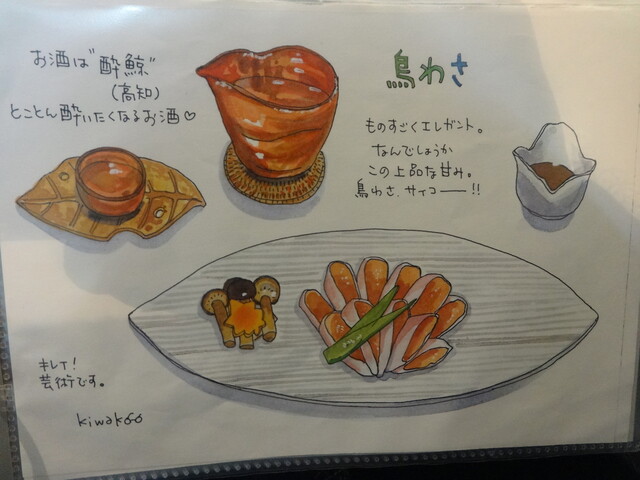 お酒は"酔鯨"
(高知)
とことん酔いたくなるお酒♡
鳥わさ
ものすごくエレガント。
なんでしょうか
この上品な甘み。
鳥わさ、サイコー——!!
キレイ!
芸術です。
kiwako